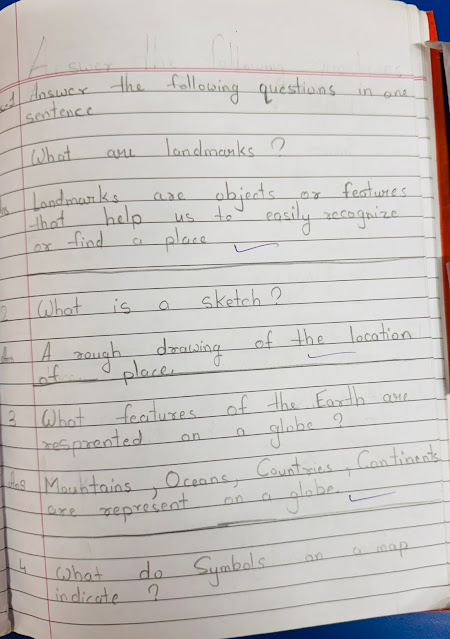 Answer the following questions
Answer the following questions in one
sentence
What are landmarks ?
Landmarks are objects or features
that help us to easily recognize
or find a place
2 What is a sketch ?
An A rough drawing of the location
of place.
3 What features of the Earth are
resprented on a globe ?
Ans Mountains , Oceans, Countries , Continents
are represent on a globe.
4 What do Symbols on a map
indicate ?